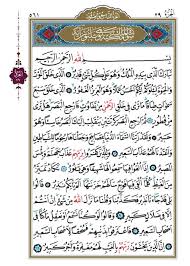 بِسْمِ اللَّهِ الرَّحْمَٰنِ الرَّحِيمِ
تَبَارَكَ الَّذِي بِيَدِهِ الْمُلْكُ وَهُوَ عَلَىٰ كُلِّ شَيْءٍ قَدِيرٌ الَّذِي خَلَقَ الْمَوْتَ
وَالْحَيَاةَ لِيَبْلُوَكُمْ أَيُّكُمْ أَحْسَنُ عَمَلًا وَهُوَ الْعَزِيزُ الْغَفُورُ الَّذِي خَلَقَ سَبْعَ
سَمَاوَاتٍ طِبَاقًا مَا تَرَىٰ فِي خَلْقِ الرَّحْمَٰنِ مِنْ تَفَاوُتٍ فَارْجِعِ الْبَصَرَ هَلْ تَرَىٰ
مِنْ فُطُورٍ ثُمَّ ارْجِعِ الْبَصَرَ كَرَّتَيْنِ يَنْقَلِبْ إِلَيْكَ الْبَصَرُ خَاسِئًا وَهُوَ
حَسِيرٌ وَلَقَدْ زَيَّنَّا السَّمَاءَ الدُّنْيَا بِمَصَابِيحَ وَجَعَلْنَاهَا رُجُومًا لِلشَّيَاطِينِ
وَأَعْتَدْنَا لَهُمْ عَذَابَ السَّعِيرِ وَلِلَّذِينَ كَفَرُوا بِرَبِّهِمْ عَذَابُ جَهَنَّمَ
وَبِئْسَ الْمَصِيرُ إِذَا أُلْقُوا فِيهَا سَمِعُوا لَهَا شَهِيقًا وَهِيَ تَفُورُ تَكَادُ
تَمَيَّزُ مِنَ الْغَيْظِ كُلَّمَا أُلْقِيَ فِيهَا فَوْجٌ سَأَلَهُمْ خَزَنَتُهَا أَلَمْ يَأْتِكُمْ نَذِيرٌ
قَالُوا بَلَىٰ قَدْ جَاءَنَا نَذِيرٌ فَكَذَّبْنَا وَقُلْنَا مَا نَزَّلَ اللَّهُ مِنْ شَيْءٍ إِنْ
أَنْتُمْ إِلَّا فِي ضَلَالٍ كَبِيرٍ وَقَالُوا لَوْ كُنَّا نَسْمَعُ أَوْ نَعْقِلُ مَا كُنَّا فِي
أَصْحَابِ السَّعِيرِ فَاعْتَرَفُوا بِذَنْبِهِمْ فَسُحْقًا لِأَصْحَابِ السَّعِيرِ
إِنَّ الَّذِينَ يَخْشَوْنَ رَبَّهُمْ بِالْغَيْبِ لَهُمْ مَغْفِرَةٌ وَأَجْرٌ كَبِيرٌ